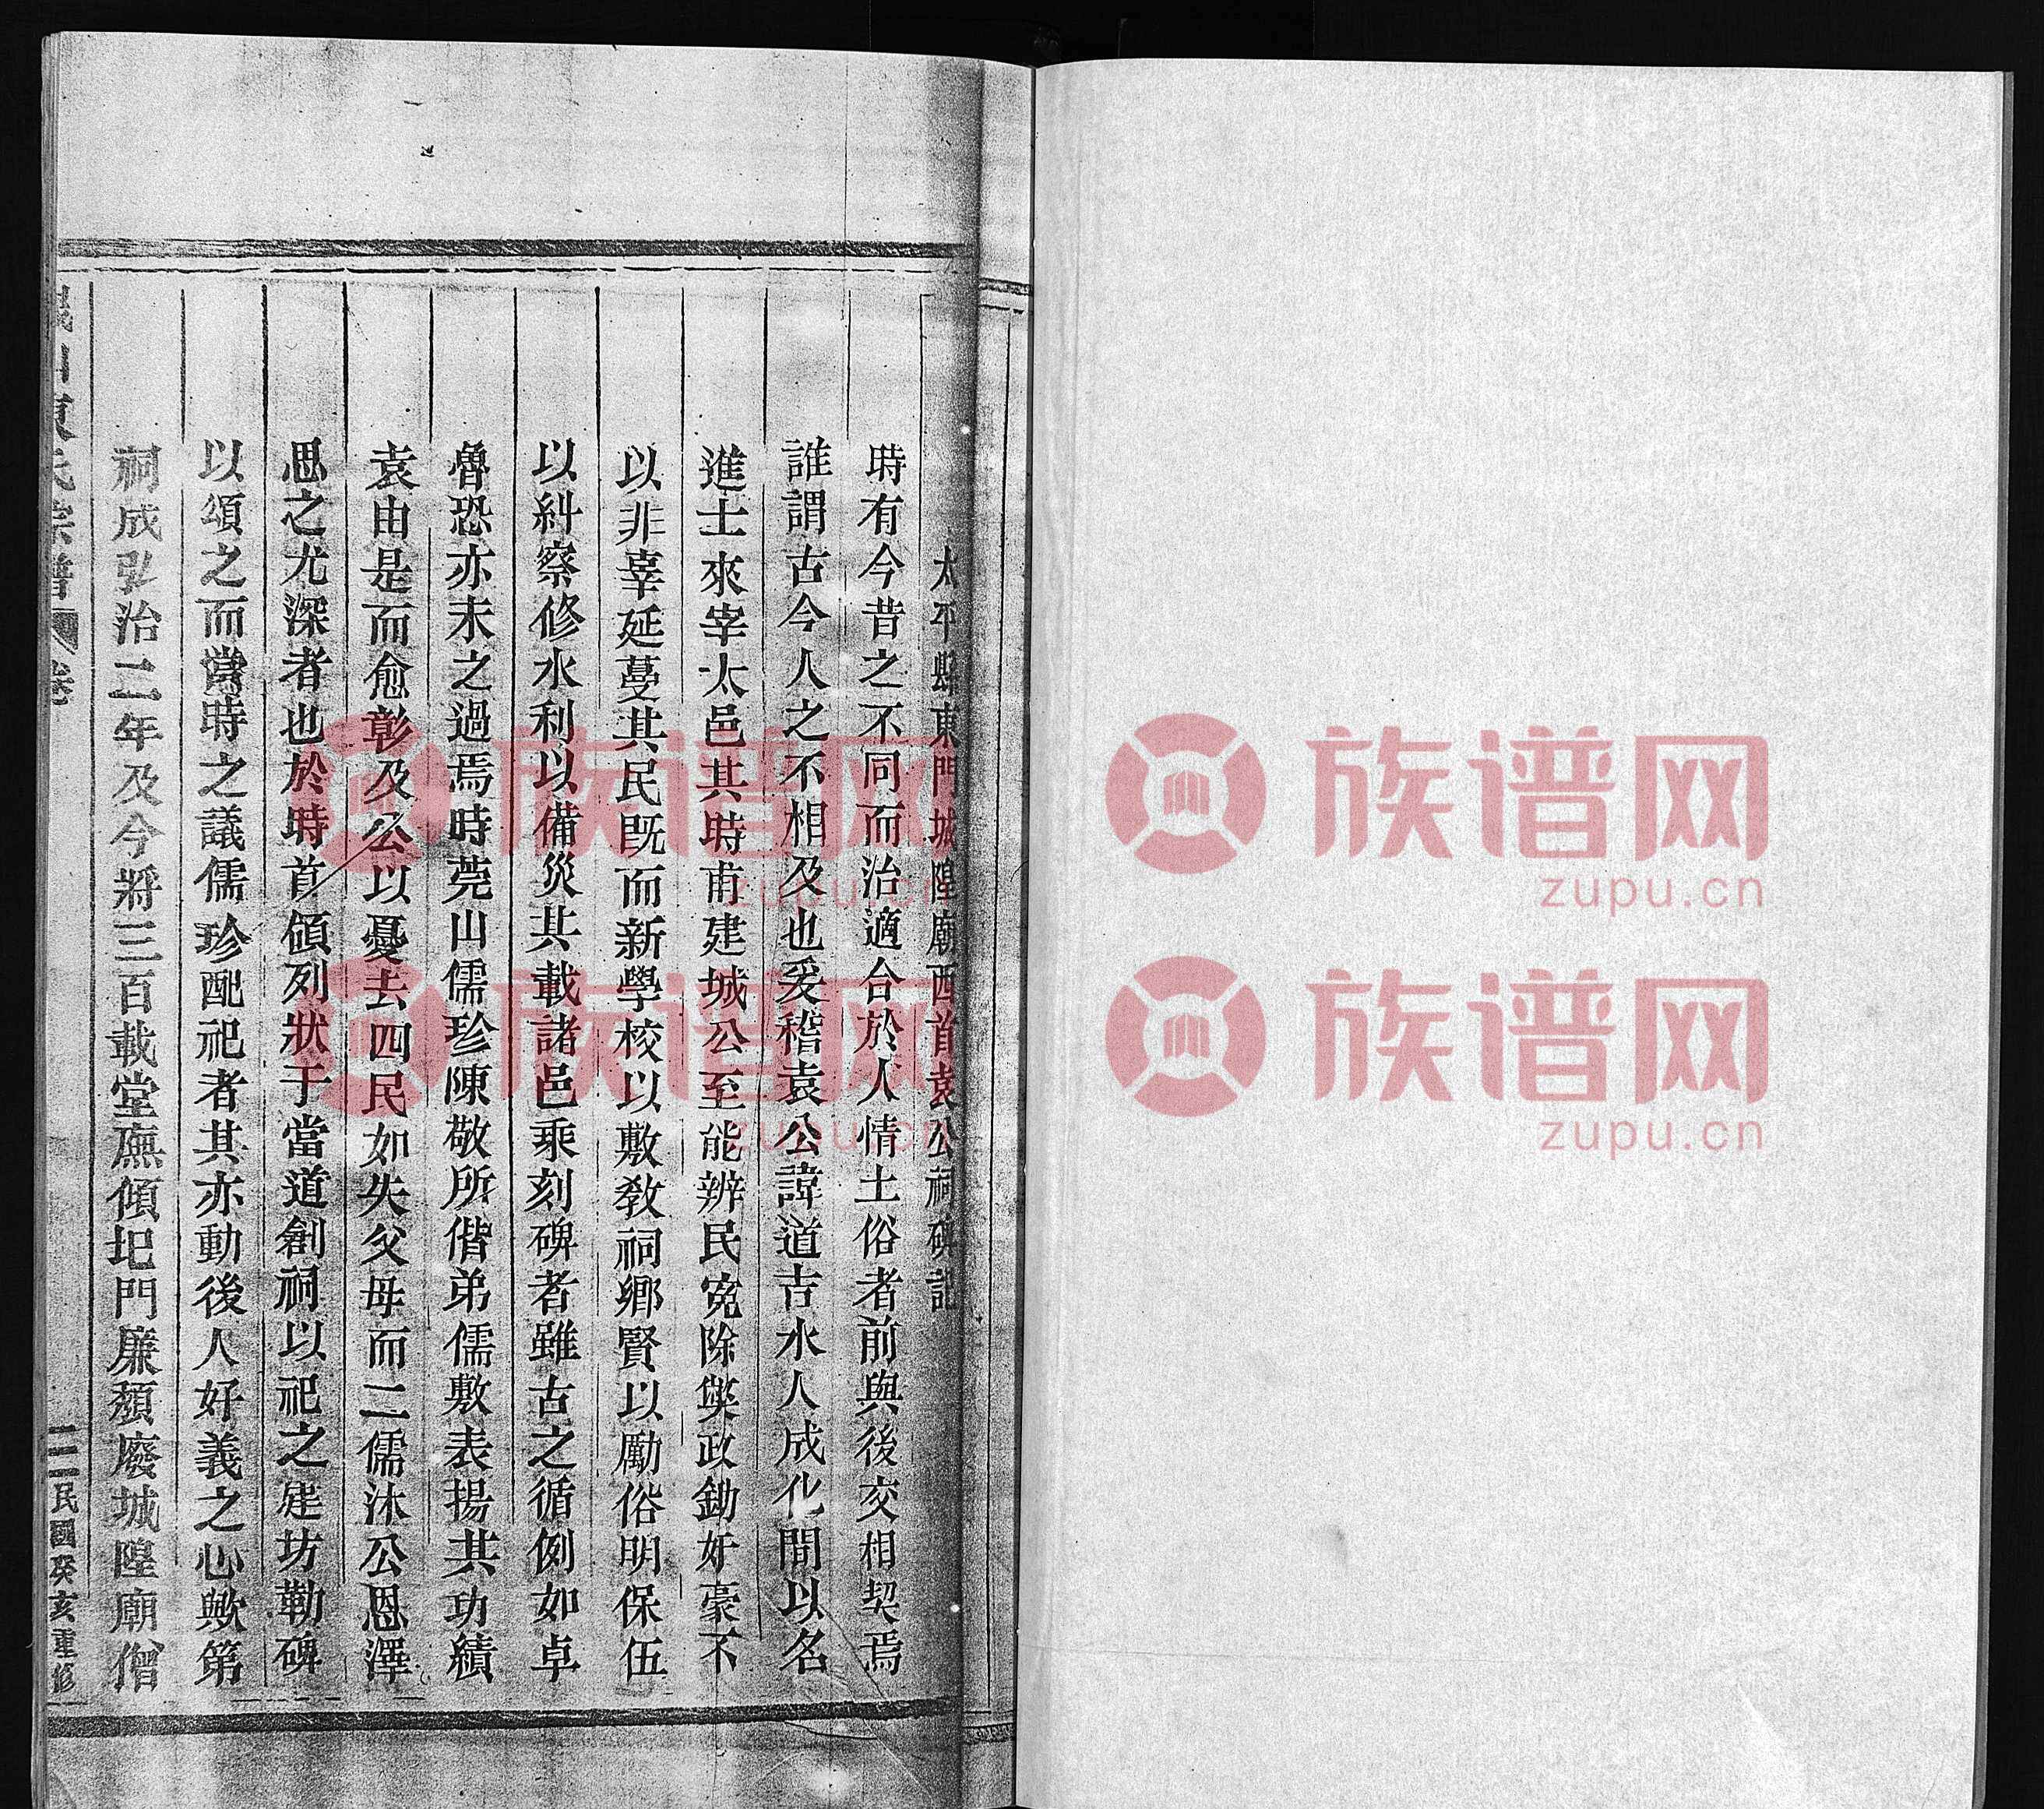 太平縣東門城隍廟西首袁公祠碑記
時有今昔之不同而治適合於人情土俗者前與後交相契焉
誰謂古今人之不相及也爰稽袁公諱道吉水人成化間以名
進士來宰太邑其時甫建城公至能辨民冤除獘政鋤奸豪不
以非辜延蔓其民既而新學校以敷教祠鄉賢以勵俗明保伍
以糾察修水利以備災其載諸邑乘刻碑者雖古之循例如卓
魯恐亦未之過焉時莞山儒珍陳敬所偕弟儒敷表揚其功績
袁由是而愈彰及公以憂去四民如失父母而二儒沐公恩澤
思之尤深者也於時首領列狀于當道創祠以祀之建坊勒碑
以頌之而當時之議儒珍配祀者其亦動後人好義之心歟第
祠成弘治二年及今將三百載堂廡傾圮門廉頹廢城隍廟僧
山陳氏宗譜 卷
二 民國癸亥重修
族谱网
zupu.cn
族谱网
zupu.cn
族谱网
zupu.cn
族谱网
zupu.cn